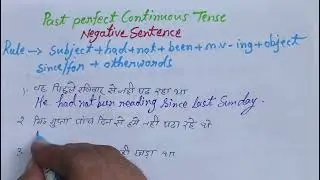 Past perfect Continuous Tense
Negative Sentence
Rule → Subject + had + not + been + m.v - ing + object
since/for + otherwords
1. वह पिछले रविवार से नहीं पढ़ रहा था
He had not bun reading since last Sunday.
2. मिस गुप्ता पांच दिन से हमें नहीं पढ़ा रहे थे
3. ही खड़ा था